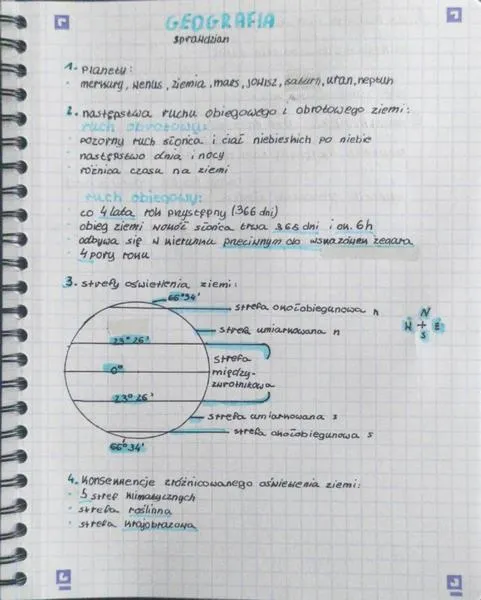 GEOGRAFIA
sprawdzian
1. planety:
• merkury, wenus, ziemia, mars, jowisz, saturn, uran, neptun
2. następstwa ruchu obiegowego i obrotowego ziemi:
ruch obrotowy:
• pozorny ruch słońca i ciał niebieskich po niebie
• następstwo dnia i nocy
• różnica czasu na ziemi
ruch obiegowy:
• co 4 lata rok przystępny (366 dni)
• obieg ziemi wokół słońca trwa 365 dni i ok. 6h
• odbywa się w kierunku przeciwnym do wskazówek zegara
• 4 pory roku
3. strefy oświetlenia ziemi:
66°34'
strefa okołobiegunowa n
strefa umiarkowana n
23°26'
strefa
między-
zwrotnikowa
0°
23°26'
strefa umiarkowana s
strefa okołobiegunowa s
66°34'
N
W + E
S
4. konsekwencje zróżnicowanego oświetlenia ziemi:
• 5 stref klimatycznych
• strefa roślinna
• strefa krajobrazowa